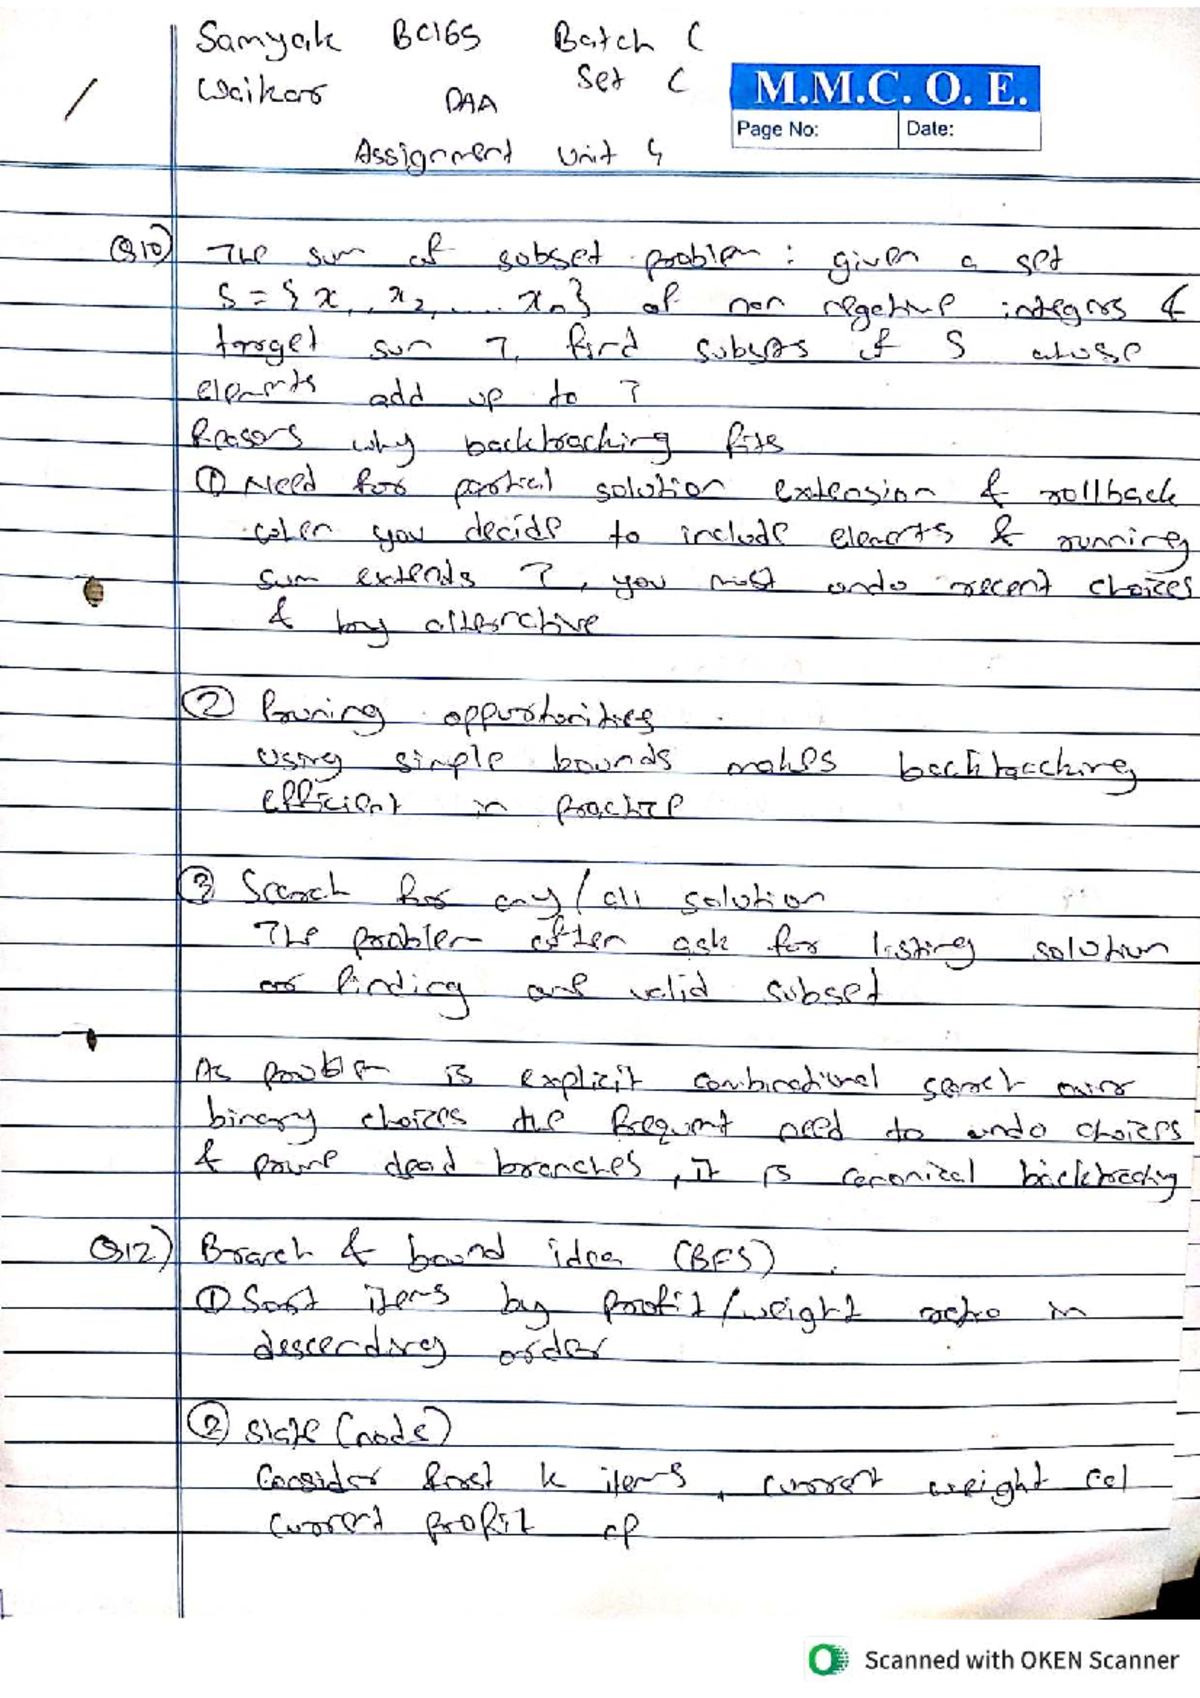 Samyak BC165 Batch C
Waikar DAA Set C
M.M.C. O. E.
Page No: Date:
Assignment Unit 4
Q10) The sum of subset problem : given a set
S = { x, , x2, .... xn } of non negative integers &
target sum T, find subsets of S whose
elements add up to T
Reasons why backtracking fits
① Need for partial solution extension & rollback
when you decide to include elements & running
sum extends T, you must undo recent choices
& try alternative
② Pruning oppurtunities
Using simple bounds makes backtracking
efficient in practice
③ Search for any / all solution
The problem often ask for listing solution
or finding one valid subset
As problem is explicit combinational search over
binary choices the frequent need to undo choices
& prune dead branches, it is canonical backtracking
Q12) Branch & bound idea (BFS)
① Sort items by profit/weight ratio in
descending order
② State (node)
Consider first k items, current weight
current profit cp
Scanned with OKEN Scanner